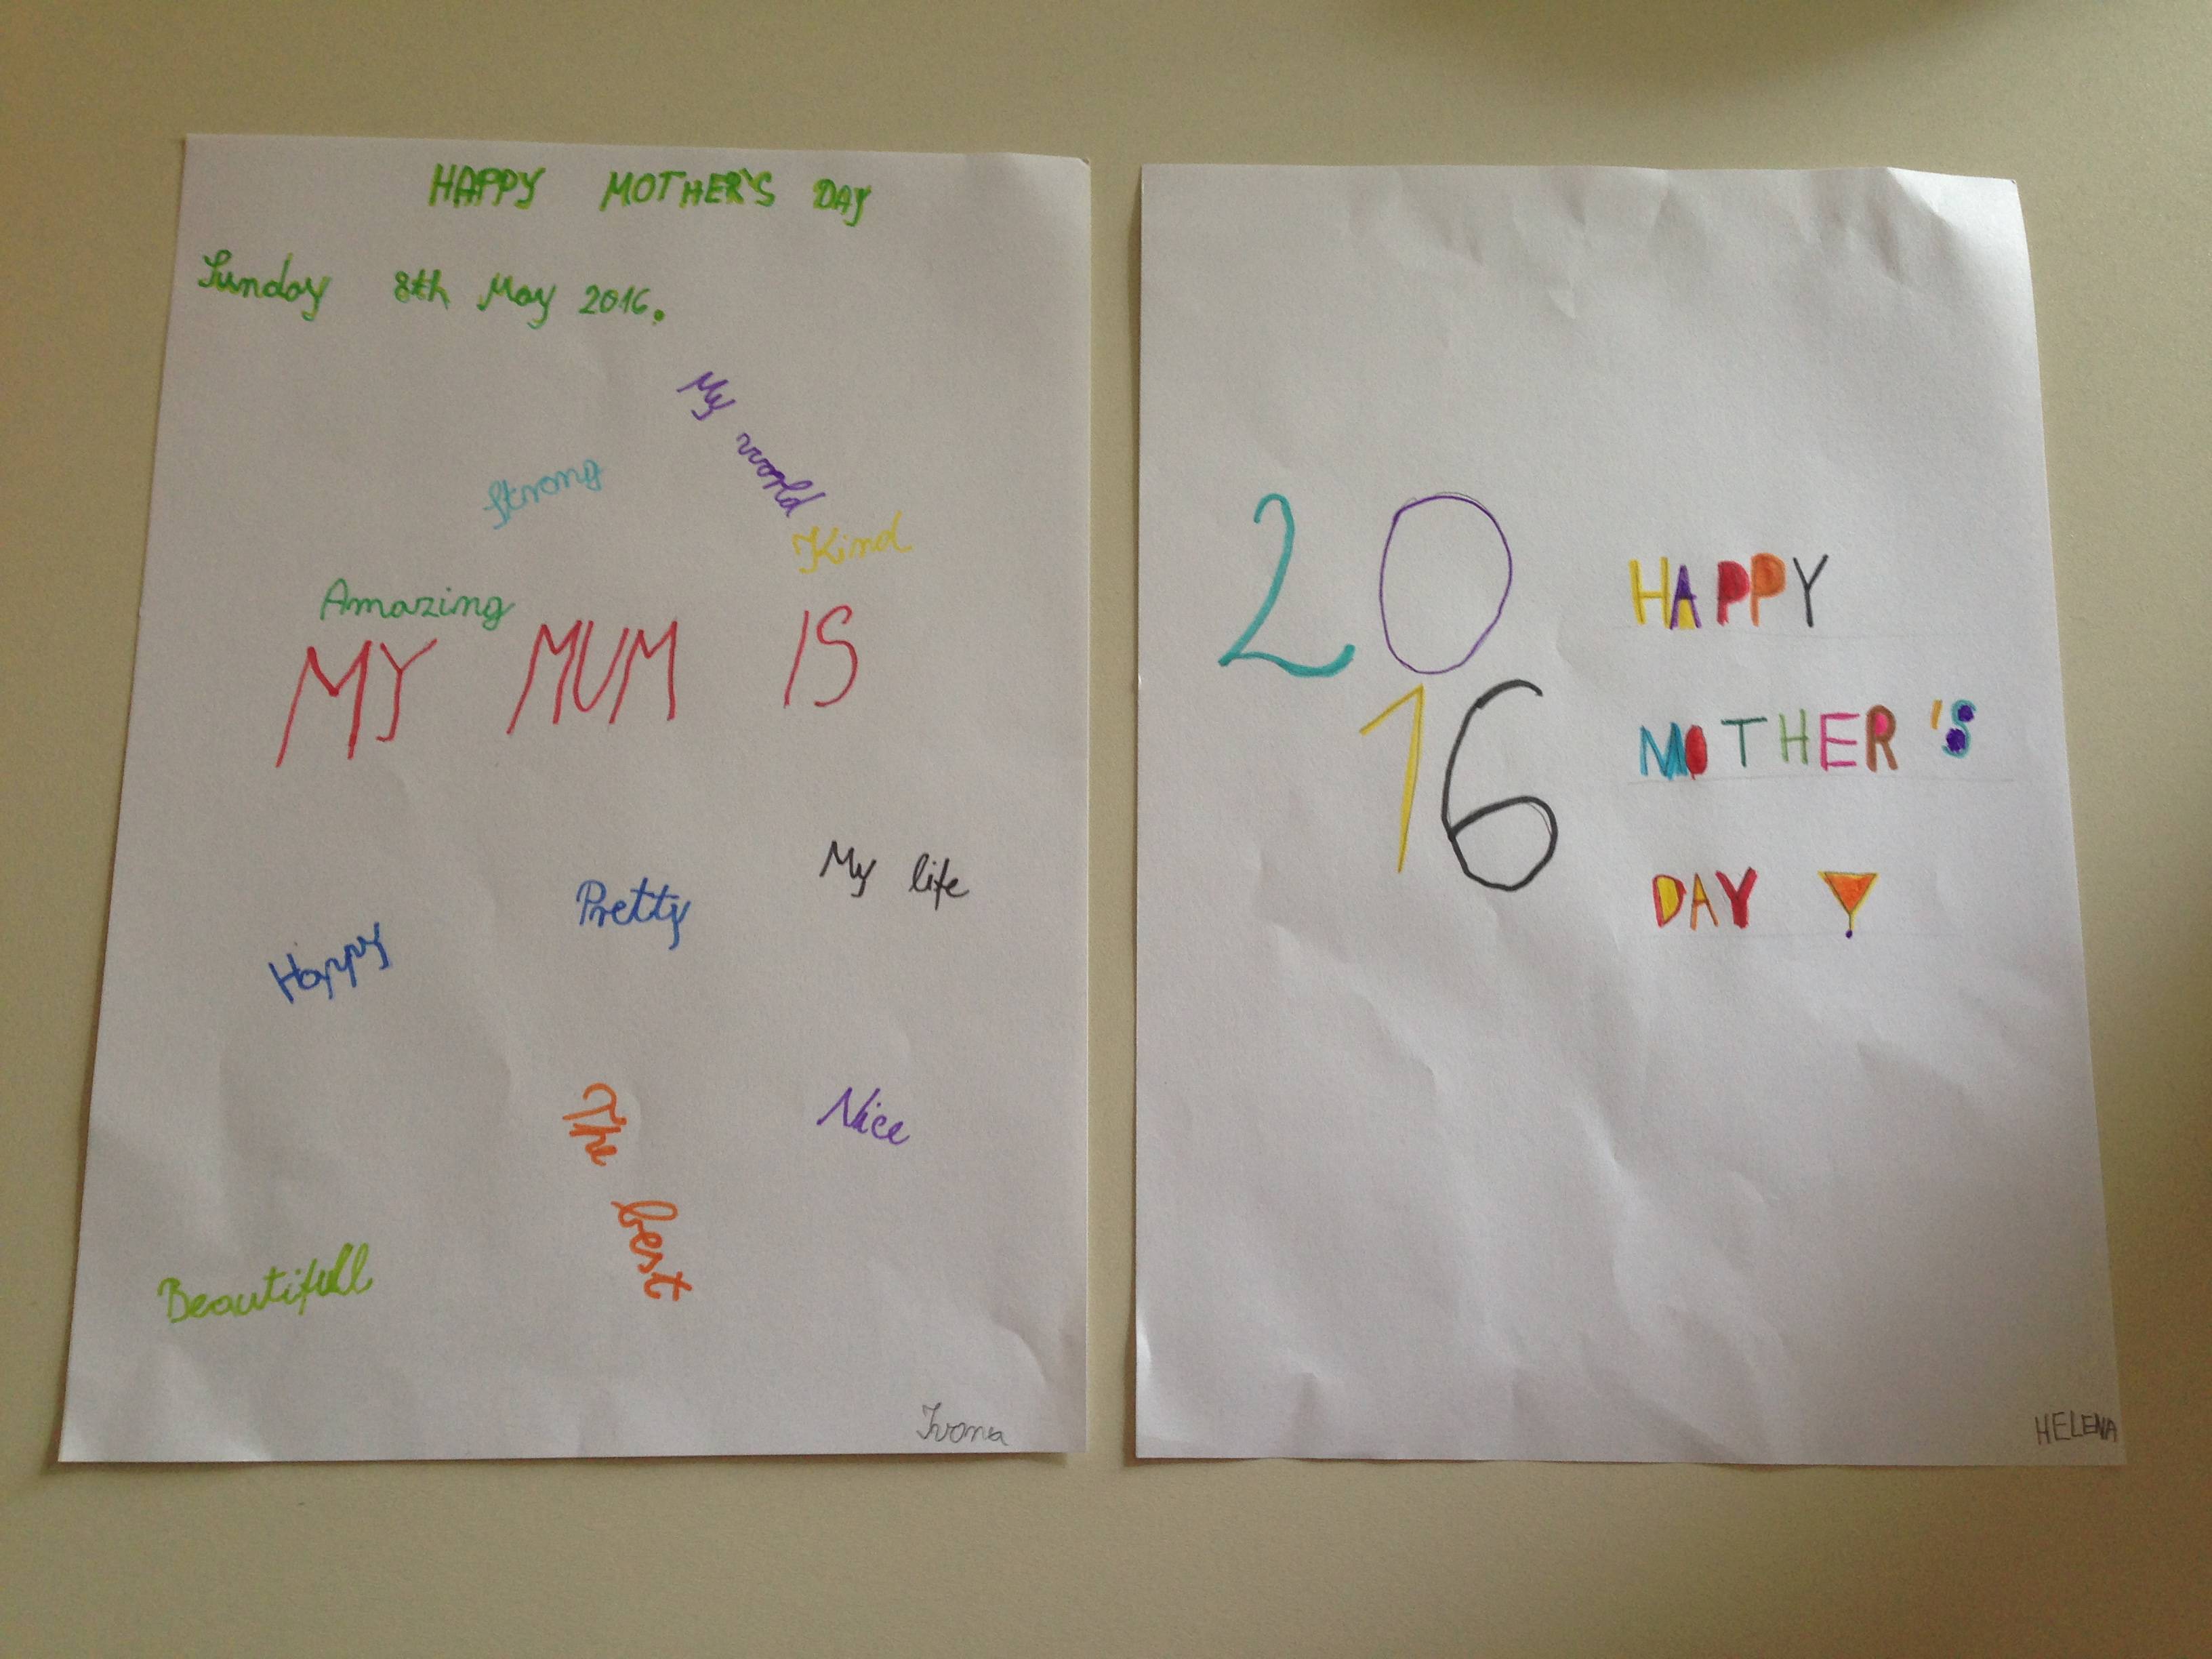 HAPPY MOTHER'S DAY
Sunday 8th May 2016.
My world
Strong
Kind
Amazing
MY MUM IS
My life
Pretty
Happy
The best
Nice
Beautifull
Ivona
20
16
HAPPY
MOTHER'S
DAY
HELENA